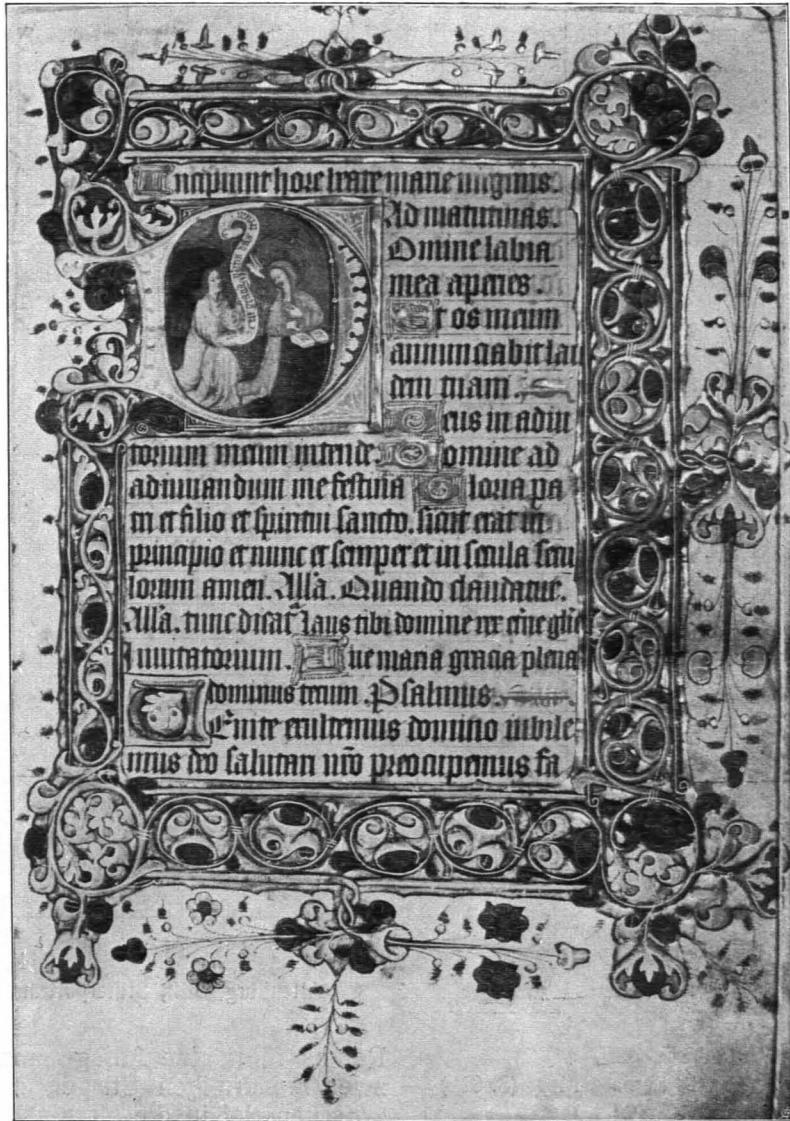 Incipiunt hore beate marie uirginis.
Ad matutinas.
Domine labia
mea aperies.
Et os meum
annunciabit lau
dem tuam.
Deus in adiu
torium meum intende. Domine ad
adiuuandum me festina Gloria pa
tri et filio et spiritui sancto. sicut erat in
principio et nunc et semper et in secula secu
lorum amen. Alla. Quando claudatur.
Alla. tunc dicat laus tibi domine rex eterne glorie
Inuitatorium. Aue maria gracia plena
dominus tecum. Psalmus.
Venite exultemus domino iubile
mus deo salutari nro preocupemus fa